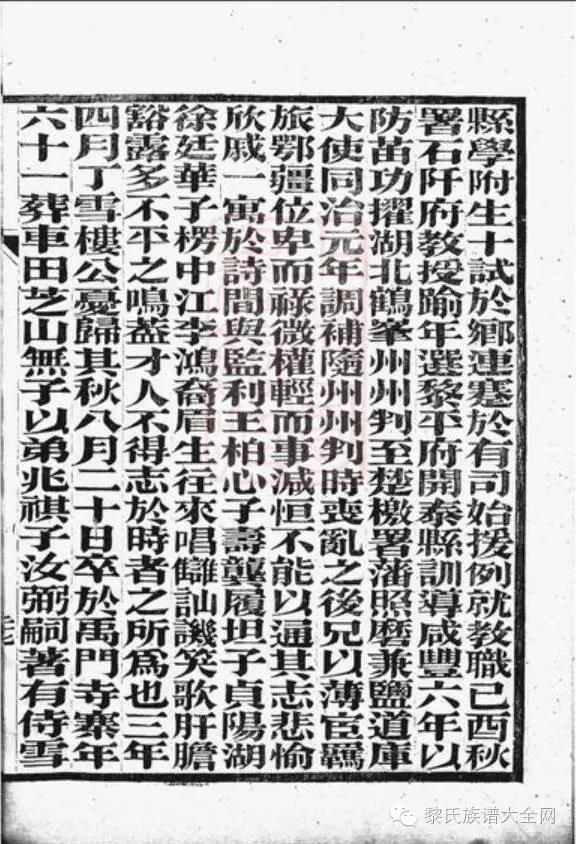 縣學附生十試於鄉連蹇於有司始援例就教職己酉秋
署石阡府教授踰年選黎平府開泰縣訓導咸豐六年以
防苗功擢湖北鶴峯州州判至楚檄署藩照磨兼鹽道庫
大使同治元年調補隨州州判時喪亂之後兄以薄宦羈
旅鄂疆位卑而祿微權輕而事減恒不能以通其志悲愉
欣戚一寓於詩間與監利王柏心子壽龔履坦子貞陽湖
徐廷華子楞中江李鴻裔眉生往來唱雔訕譏笑歌肝膽
豁露多不平之鳴蓋才人不得志於時者之所為也三年
四月丁雪樓公憂歸其秋八月二十日卒於禹門寺寨年
六十一葬車田芝山無子以弟兆祺子汝弼嗣著有侍雪
黎氏族谱大全网